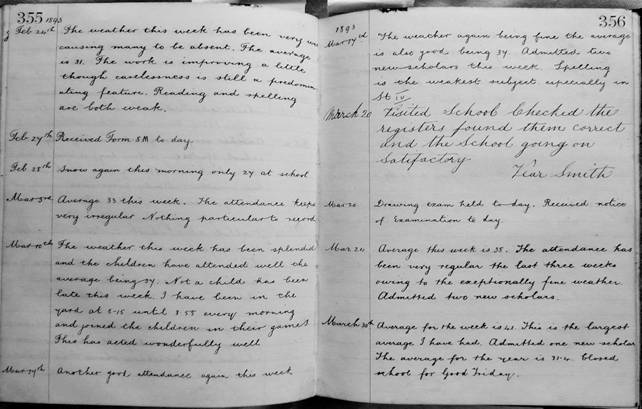 355 1893
Feb 24th The weather this week has been very
causing many to be absent. The average
is 31. The work is improving a little
though carelessness is still a predomin
ating feature. Reading and spelling
are both weak.
Feb 27th Received Form 8M to day.
Feb 28th Snow again this morning only 24 at school
Mar 3rd Average 33 this week. The attendance keeps
very irregular Nothing particular to record
Mar 10th The weather this week has been splendid
and the children have attended well the
average being 37. Not a child has been
late this week. I have been in the
yard at 8-15 until 8 55 every morning
and joined the children in their games
This has acted wonderfully well
Mar 17th Another good attendance again this week
356
1893
Mar 17th The weather again being fine the average
is also good being 37. Admitted two
new scholars this week. Spelling
is the weakest subject especially in
St IV.
March 20 Visited School Checked the
registers found them correct
and the School going on
Satisfactory
Smith
Mar 20 Drawing exam held to day. Received notice
of Examination to day.
Mar 24 Average this week is 38. The attendance has
been very regular the last three weeks
owing to the exceptionally fine weather.
Admitted two new scholars.
March 30th Average for the week is 41. This is the largest
average I have had. Admitted one new scholar
The average for the year is 31.4. Closed
school for Good Friday.